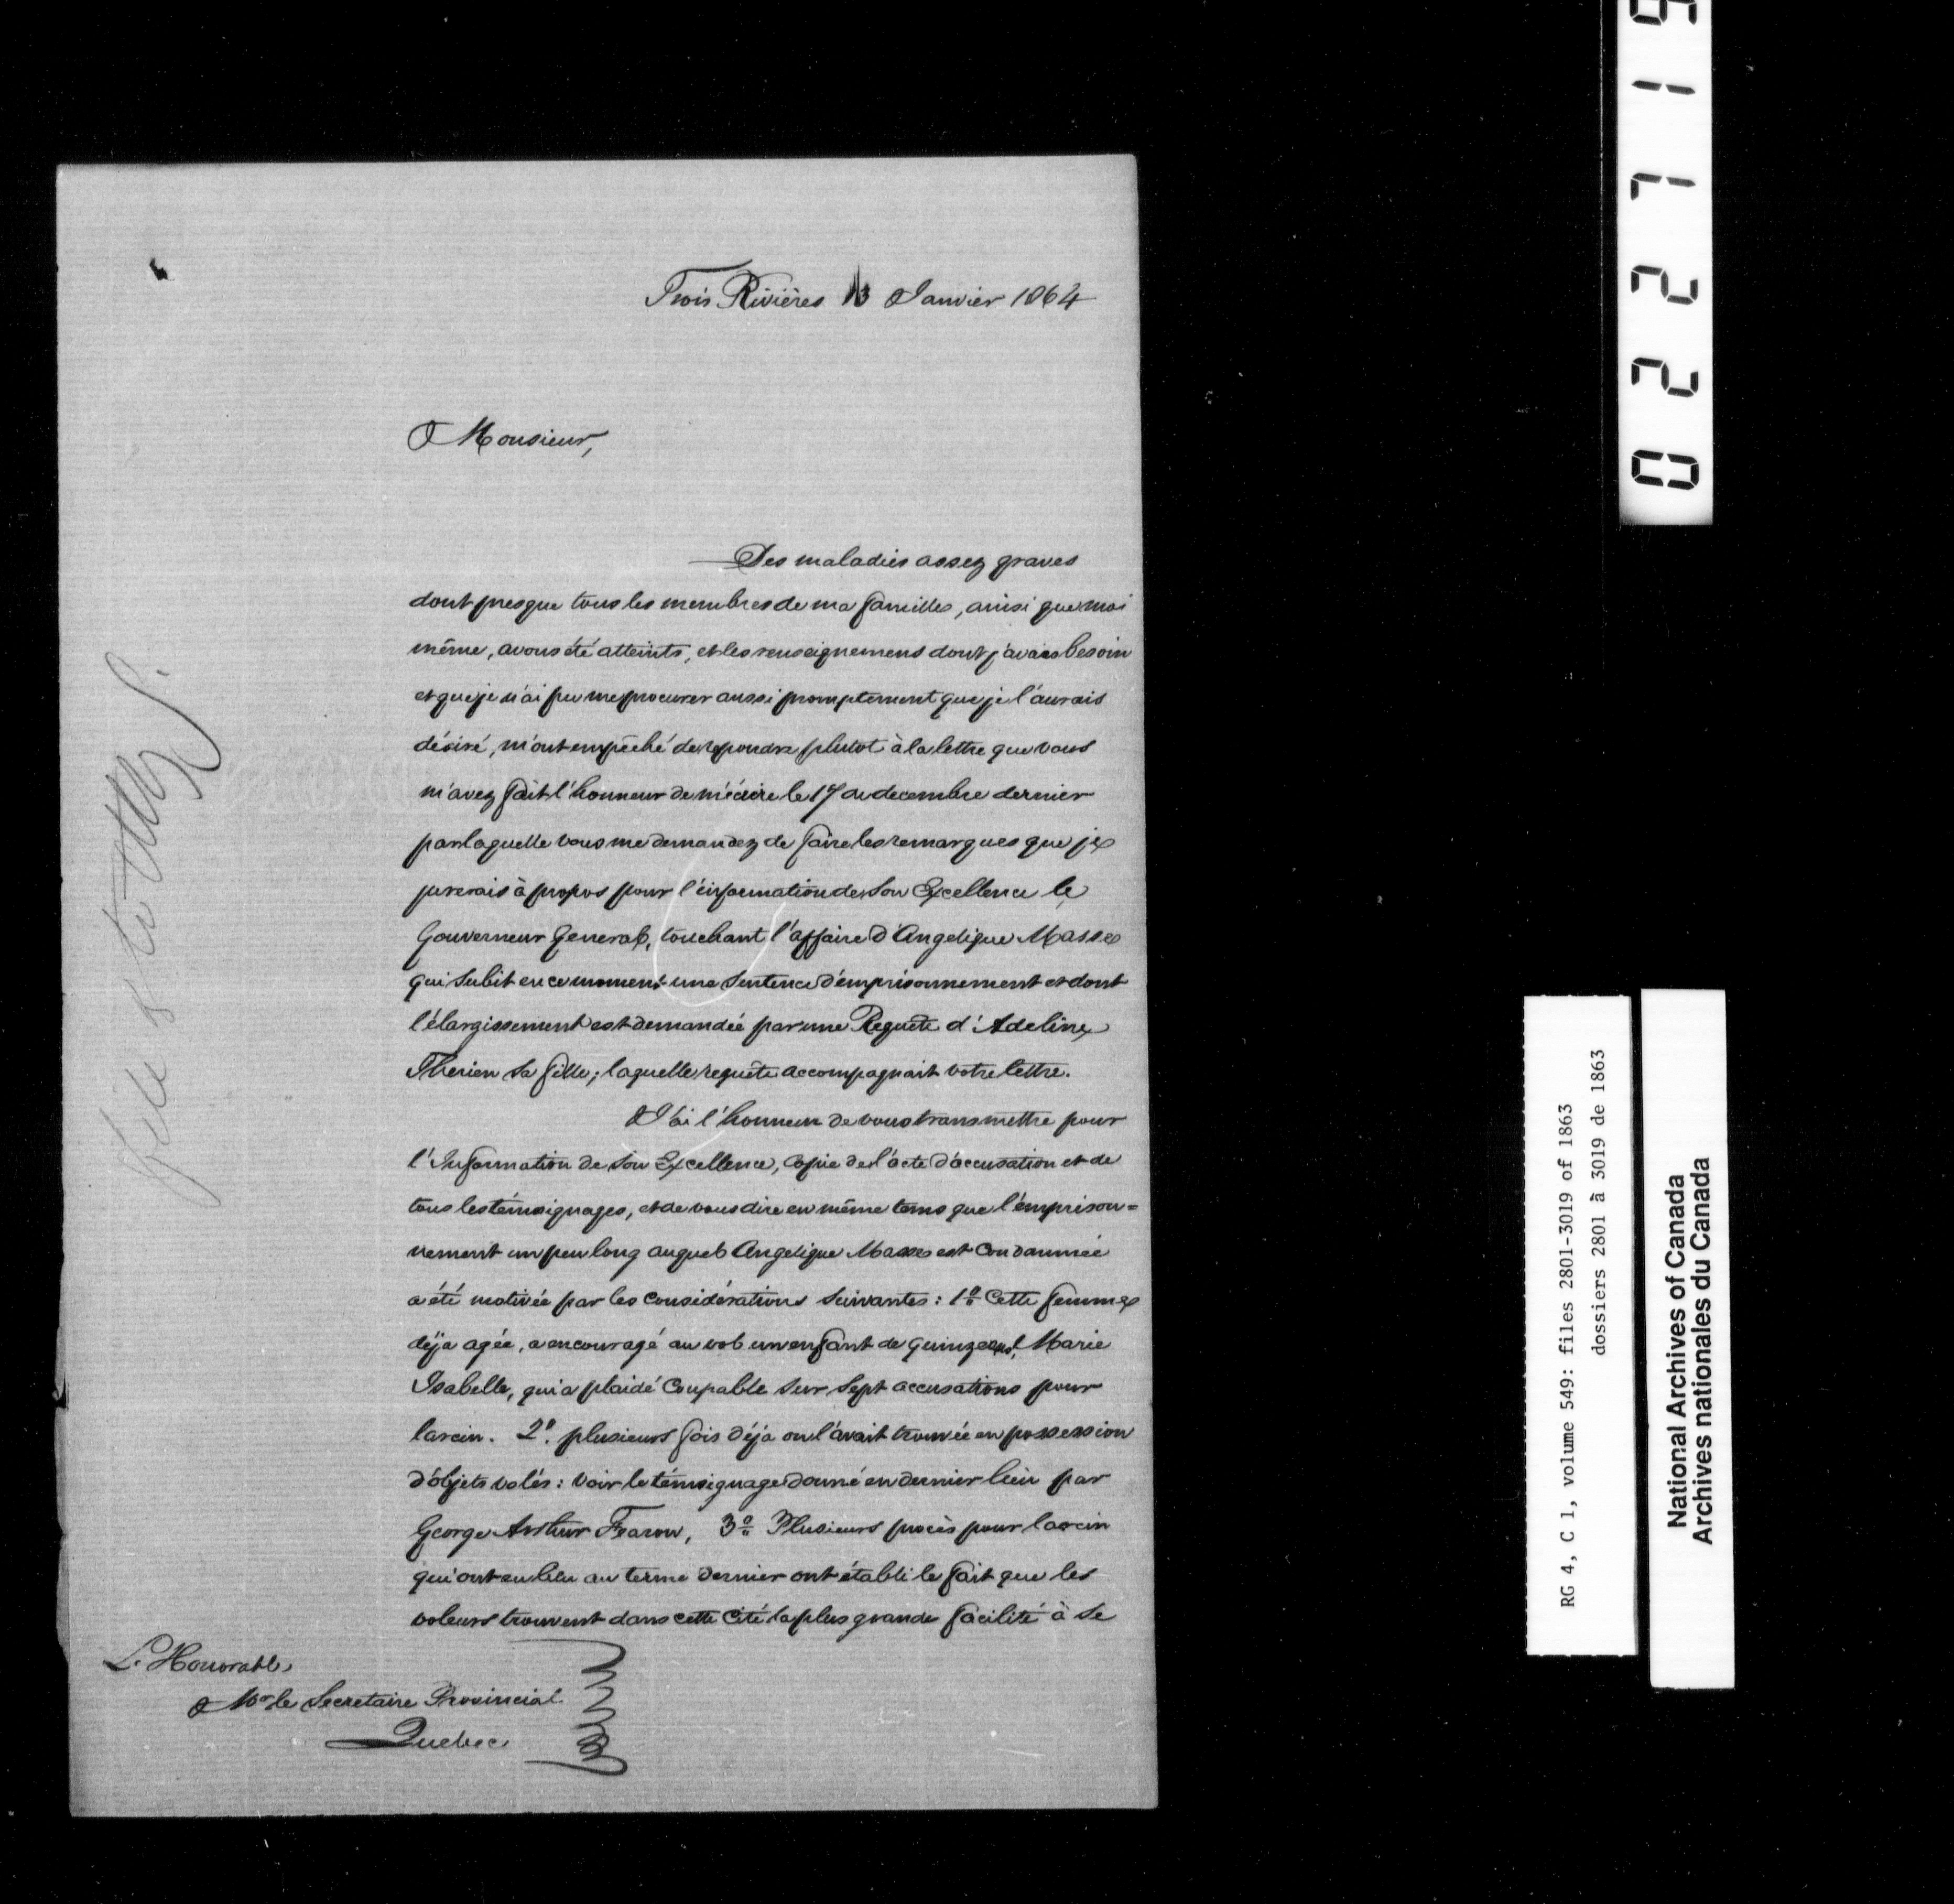 Trois Rivières 13 Janvier 1864
Monsieur,
Des maladies assez graves
dont presque tous les membres de ma famille, ainsi que moi
même, avons été atteints, et les renseignemens dont j'avais besoin
et que je n'ai pu me procurer aussi promptement que je l'aurais
désiré, m'ont empêché de repondre plutot à la lettre que vous
m'avez fait l'honneur de m'écrire le 17 de decembre dernier
par laquelle vous me demandez de faire les remarques que je
jugerais à propos pour l'information de Son Excellence le
Gouverneur General, touchant l'affaire d'Angelique Masse
qui subit en ce moment une sentence d'emprisonnement et dont
l'élargissement est demandée par une Requête d'Adeline
Therien sa fille; laquelle requête accompagnait votre lettre.
J'ai l'honneur de vous transmettre pour
l'Information de Son Excellence, Copie de l'acte d'accusation et de
tous les témoignages, et de vous dire en même tems que l'emprison=
nement un peu long auquel Angelique Masse est Condamnée
a été motivée par les Considérations suivantes: 1º Cette femme
déja agée, a encouragé au vol un enfant de quinze ans, Marie
Isabelle, qui a plaidé Coupable sur sept accusations pour
larcin. 2º. plusieurs fois déja on l'avait trouvée en possession
d'objets volés: voir le témoignage donné en dernier lieu par
George Arthur Fearon, 3º Plusieurs procès pour larcin
qui ont eu lieu au terme dernier ont établi le fait que les
voleurs trouvent dans cette Cité la plus grande facilité à se
L'Honorable
Mr le Secretaire Provincial
Quebec
0 2 2 7 1 9
RG 4, C 1, volume 549: files 2801-3019 of 1863
dossiers 2801 à 3019 de 1863
National Archives of Canada
Archives nationales du Canada